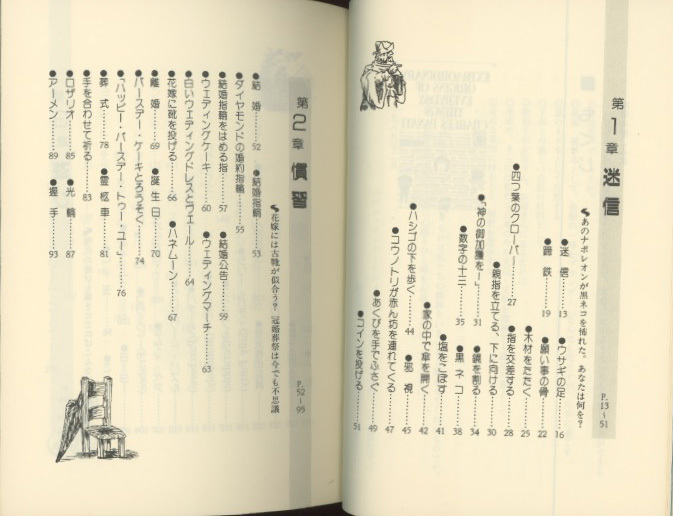 第1章 迷信
あのナポレオンが黒ネコを怖れた。あなたは何を?
P.13〜51
●迷信……13 ●ウサギの足……16
●蹄鉄……19 ●願い事の骨……22
●木材をたたく……25
●四つ葉のクローバー……27 ●指を交差する……28
●親指を立てる、下に向ける……30
●「神の御加護を!」……31 ●鏡を割る……34
●数字の十三……35 ●黒ネコ……38
●塩をこぼす……41
●家の中で傘を開く……42
●ハシゴの下を歩く……44 ●邪視……45
●コウノトリが赤ん坊を連れてくる……47
●あくびを手でふさぐ……49
●コインを投げる……51
第2章 慣習
花嫁には古戦が似合う? 冠婚葬祭は今でも不思議
P.52〜95
●結婚……52 ●結婚指輪……53
●ダイヤモンドの婚約指輪……55
●結婚指輪をはめる指……57 ●結婚公告……59
●ウェディングケーキ……60 ●ウェディングマーチ……63
●白いウェディングドレスとヴェール……64
●花嫁に靴を投げる……66 ●ハネムーン……67
●離婚……69 ●誕生日……70
●バースデー・ケーキとろうそく……74
●「ハッピー・バースデー・トゥー・ユー」……76
●葬式……78 ●霊柩車……81
●手を合わせて祈る……83
●ロザリオ……85 ●光輪……87
●アーメン……89 ●握手……93